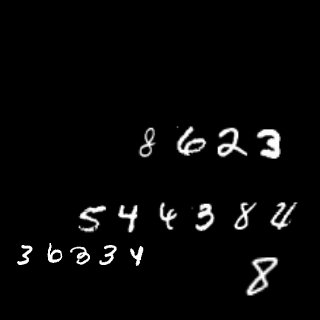 8623
544384
36334
8